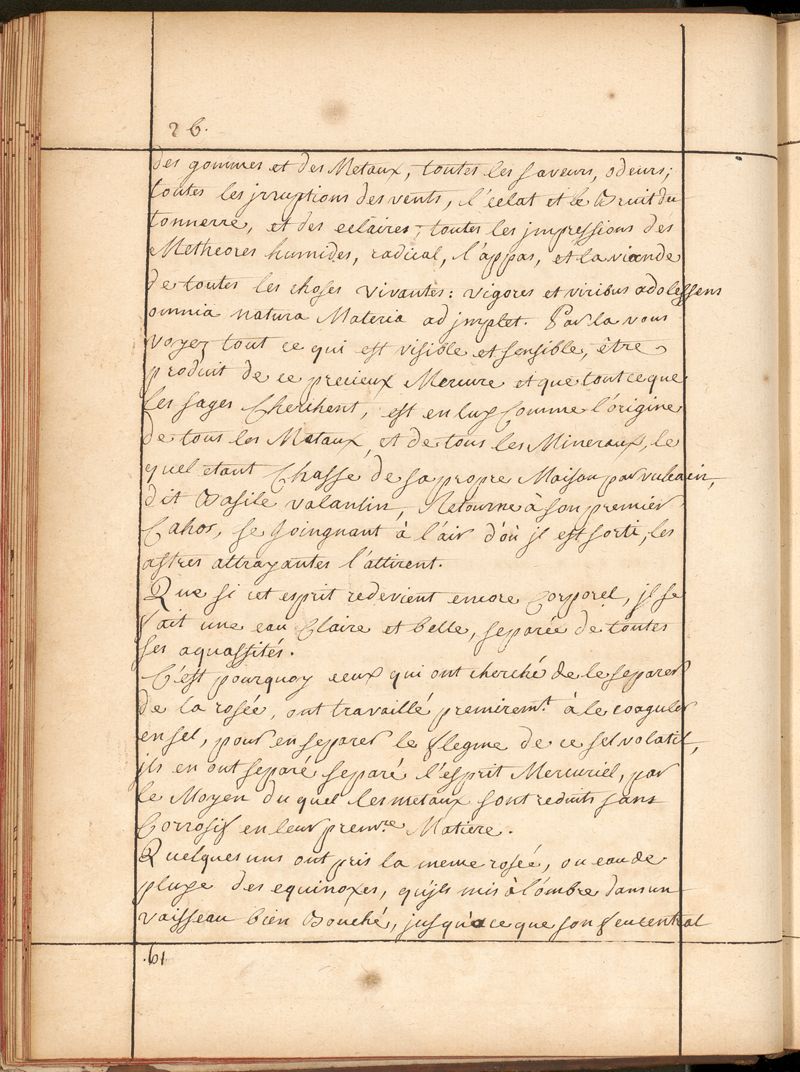 26.
des gommes et des Metaux, toutes les saveurs, odeurs;
toutes les jrruptions des vents, l'eclat et le Bruit du
tonnerre, et des eclaires, toutes les jmpressions des
Metheores humides, radical, l'appas, et la viande
de toutes les choses vivantes: vigores et viribus adolessens
omnia natura Materia ad jmplet. Par la vous
voyez tout ce qui est visible et sensible, être
produit de ce precieux Mercure et que tout ce que
les sages Cherchent, est en luy Comme l'origine
de tous les Metaux, et de tous les Mineraux, le
quel etant Chassé de sa propre Maison par vulcain,
dit Basile valantin, Retourne à son premier
Cahos, se Joingnant à l'air d'où jl est sorti, les
astres attrayantes l'attirent.
Que si cet esprit redevient encore Corporel, jl se
fait une eau Claire et belle, separée de toutes
ses aquassités.
C'est pourquoy ceux qui ont cherché de le separer
de la rosée, ont travaillé premiremt. à le coaguler
en sel, pour en separer le flegme de ce sel volatil,
jls en ont separé separé l'esprit Mercuriel, par
le Moyen du quel les metaux sont reduits sans
Corrosif en leur premre. Matiere.
Quelques uns ont pris la meme rosée, ou eau de
pluye des equinoxes, qu'jls mis à l'ombre dans un
vaisseau bien Bouché, jusqu'a ce que son feu central
.61